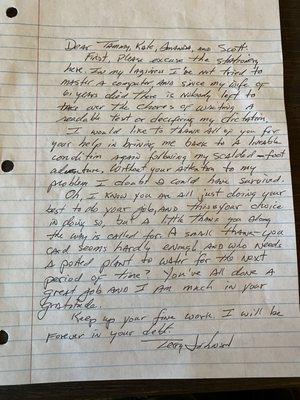 Dear Tammy, Kate, Amanda, and Scott:
First, Please excuse the stationary
here. In my laziness I've not tried to
master a computer and since my wife of
61 years died there is nobody left to
take over the chores of writing a
readable text or deciffering my dictation.
I would like to thank all of you for
your help in bringing me back to a liveable
condition again following my scalded-foot
adventure. Without your attention to my
problem I doubt I could have survived.
Oh, I know you are all just doing your
best to do your job, and this is your choice
in doing so, but a little thank you along
the way is called for. A small thank-you
card seems hardly enough and who needs
a potted plant to water for the next
period of time? You've all done a
great job and I am much in your
gratitude.
Keep up your fine work. I will be
forever in your debt.